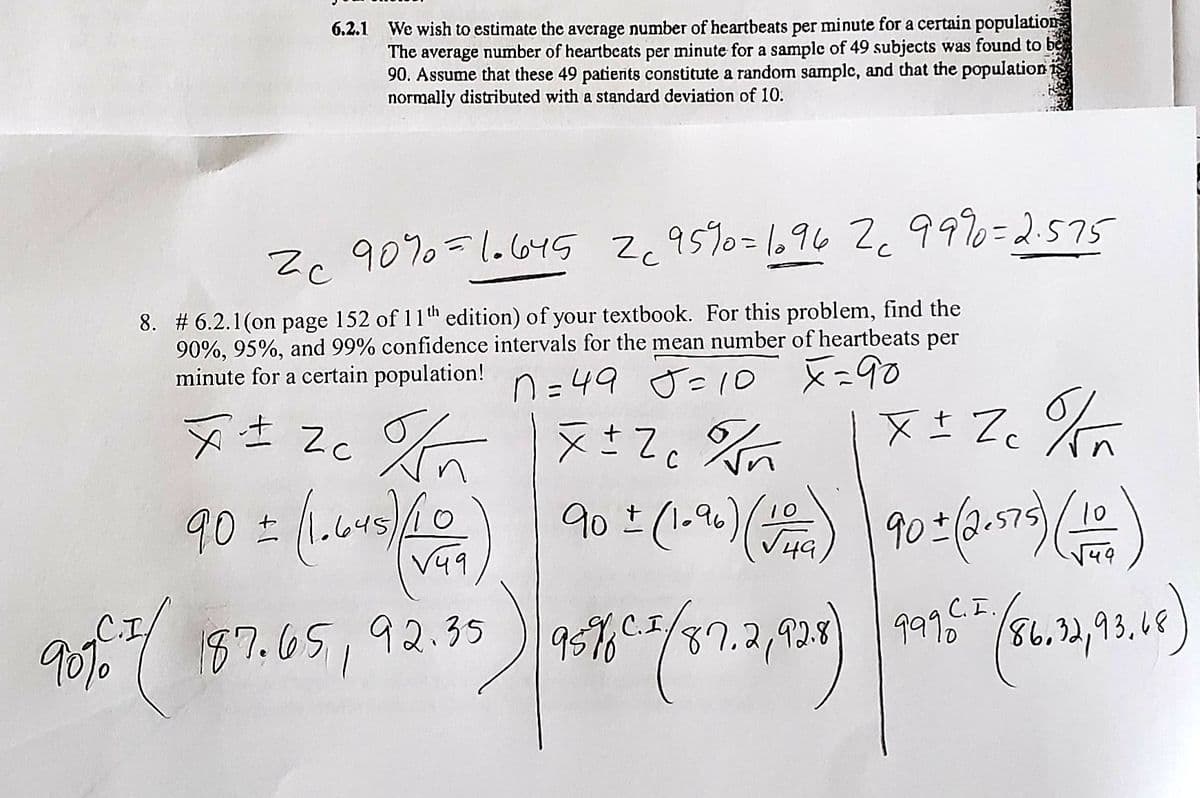 6.2.1 We wish to estimate the average number of heartbeats per minute for a certain population.
The average number of heartbeats per minute for a sample of 49 subjects was found to be
90. Assume that these 49 patients constitute a random sample, and that the population is
normally distributed with a standard deviation of 10.
Zc 90% = 1.645 Zc 95% = 1.96 Zc 99% = 2.575
8. # 6.2.1(on page 152 of 11th edition) of your textbook. For this problem, find the
90%, 95%, and 99% confidence intervals for the mean number of heartbeats per
minute for a certain population! n = 49 σ = 10 x̄ = 90
x̄ ± Zc σ/√n | x̄ ± Zc σ/√n | x̄ ± Zc σ/√n
90 ± (1.645)(10/√49) | 90 ± (1.96)(10/√49) | 90 ± (2.575)(10/√49)
90% C.I. (87.65, 92.35) | 95% C.I. (87.2, 92.8) | 99% C.I. (86.32, 93.68)